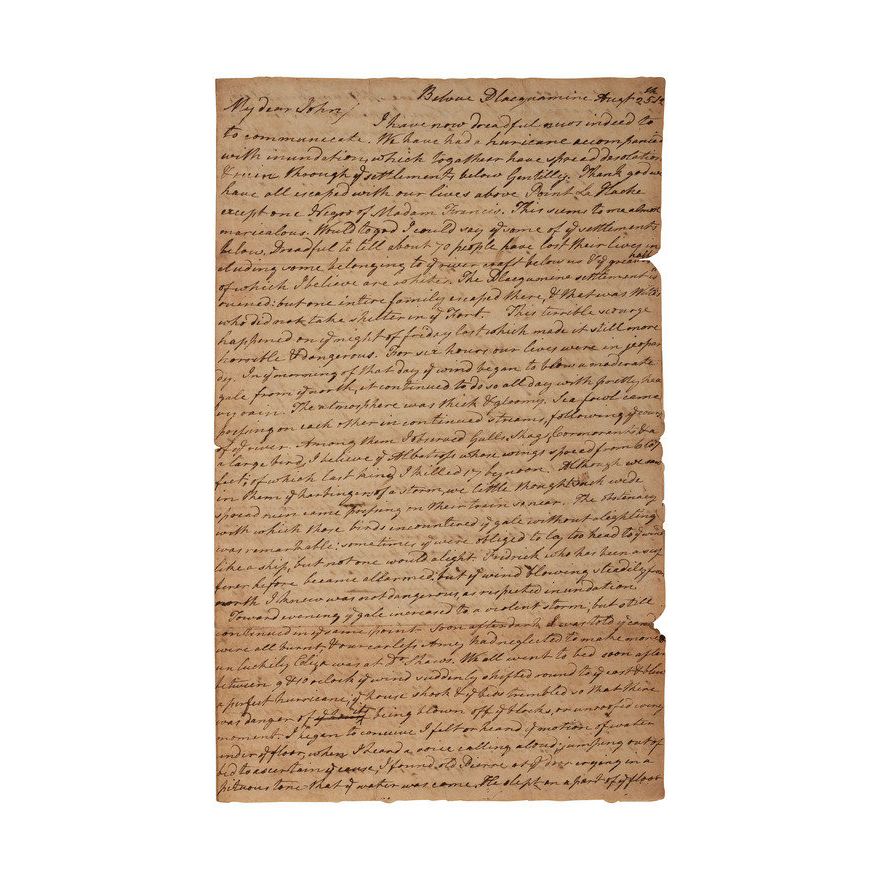 Belvue Placquemine Augt 25th
My dear John/
I have now dreadful news indeed to
to communicate. We have had a huricane accompanied
with inundation, which together have spread desolation
& ruin through ye settlements below Gentilly. Thank god we
have all escaped with our lives above Point La Hache
except one Negro of Madam Francis. This seems to me almost
maricalous. Would to god I could say ye same of ye settlements
below. Dreadful to tell about 70 people have lost their lives in
cluding some belonging to ye river craft below us & ye greater half
of which I believe are whites. The Placquemine settlement is
ruened: but one intire family escaped there, & that was
who did not take shelter in ye Fort. This terrible scourge
happened on ye night of friday last which made it still more
horrible & dangerous. For six hours our lives were in jeopar
dy. In ye morning of that day ye wind began to blow a moderate
gale from ye north, it continued to do so all day with prettly hea
vy rain. The atmosphere was thick & gloomy. Sea fowl came
pressing on each other in continued streams, following ye cours
of ye river. Among them I observed Gulls, Shag, Cormorants & a
a large bird, I believe ye Albatross whose wings spread from 6 to 7
feet; of which last kind I killed 17 by noon. Although we saw
in them ye harbingers of a storm, we little thought such wide
spread ruin came pressing on their train so near. The obstinacy
with which those birds encountered ye gale without alighting
was remarkable: sometimes ye were obliged to lay too head to ye wind
like a ship, but not one would alight. Fedrick who has been a suf
ferer before became allarmed, but ye wind blowing steadily from
north I knew was not dangerous, as respected inundation.
Toward evening ye gale increased to a violent storm; but still
continued in ye same point. Soon after dark I was told ye candles
were all burnt, & our carless Amy had neglected to make more
un luckily Eliza was at Dr Shaws. We all went to bed soon after
between 9 & 10 oclock ye wind suddenly shifted round to ye east & blew
a perfect hurricane; ye house shook & ye trembled so that there
was danger of being blown off ye blocks, or unroofed every
moment. I began to conceive I felt or heard ye motion of water
under ye floor, when I heard a voice calling aloud; jumping out of
bed to ascertain ye cause, I found old Pierre at ye door crying in a
pituous tone that ye water was come. He slept on a part of ye floor